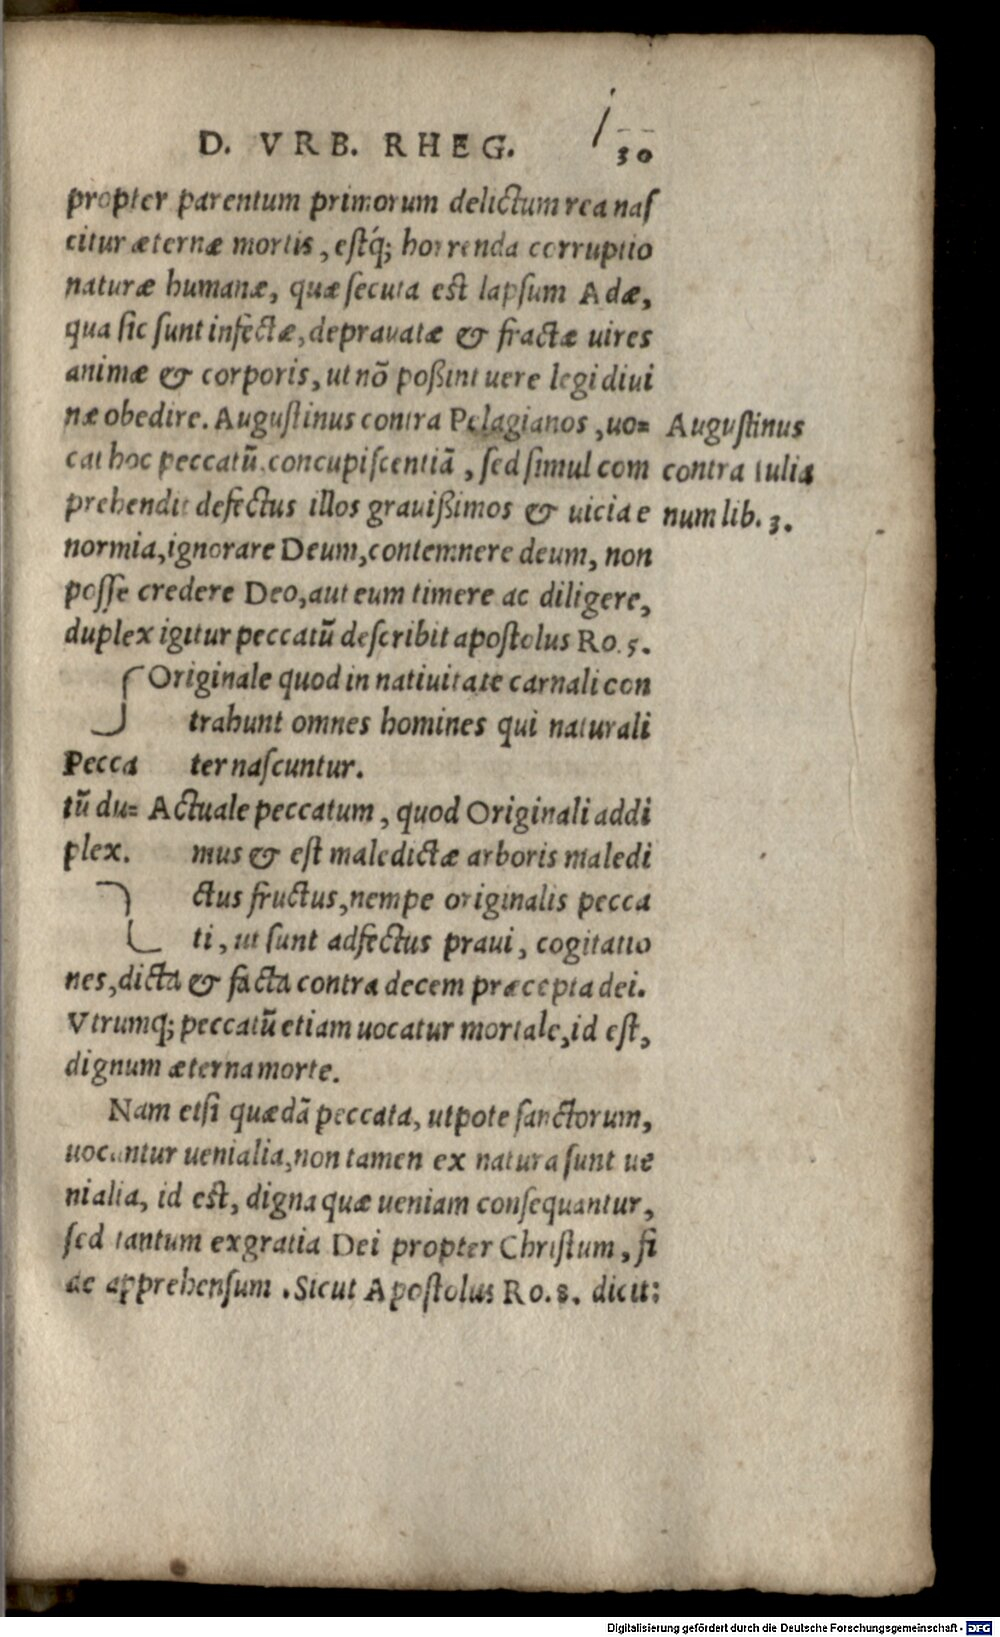 D. VRB. RHEG.
30
propter parentum primorum delictum rea nas
citur æternæ mortis, estq́; horrenda corruptio
naturæ humanæ, quæ secuta est lapsum Adæ,
qua sic sunt infectæ, depravatæ & fractæ uires
animæ & corporis, ut nõ poßint uere legi diui
næ obedire. Augustinus contra Pelagianos, uo=
cat hoc peccatũ concupiscentiã, sed simul com
prehendit defectus illos grauißimos & uicia e
normia, ignorare Deum, contemnere deum, non
posse credere Deo, aut eum timere ac diligere,
duplex igitur peccatũ describit apostolus Ro. 5.
Augustinus
contra Iulia
num lib. 3.
Originale quod in natiuitate carnali con
trahunt omnes homines qui naturali
Pecca ter nascuntur.
tũ du= Actuale peccatum, quod Originali addi
plex. mus & est maledictæ arboris maledi
ctus fructus, nempe originalis pecca
ti, ut sunt adfectus praui, cogitatio
nes, dicta & facta contra decem præcepta dei.
Vtrumq; peccatũ etiam uocatur mortale, id est,
dignum æterna morte.
Nam etsi quædã peccata, utpote sanctorum,
uocantur uenialia, non tamen ex natura sunt ue
nialia, id est, digna quæ ueniam consequantur,
sed tantum ex gratia Dei propter Christum, fi
de apprehensum. Sicut Apostolus Ro. 8. dicit:
Digitalisierung gefördert durch die Deutsche Forschungsgemeinschaft - DFG